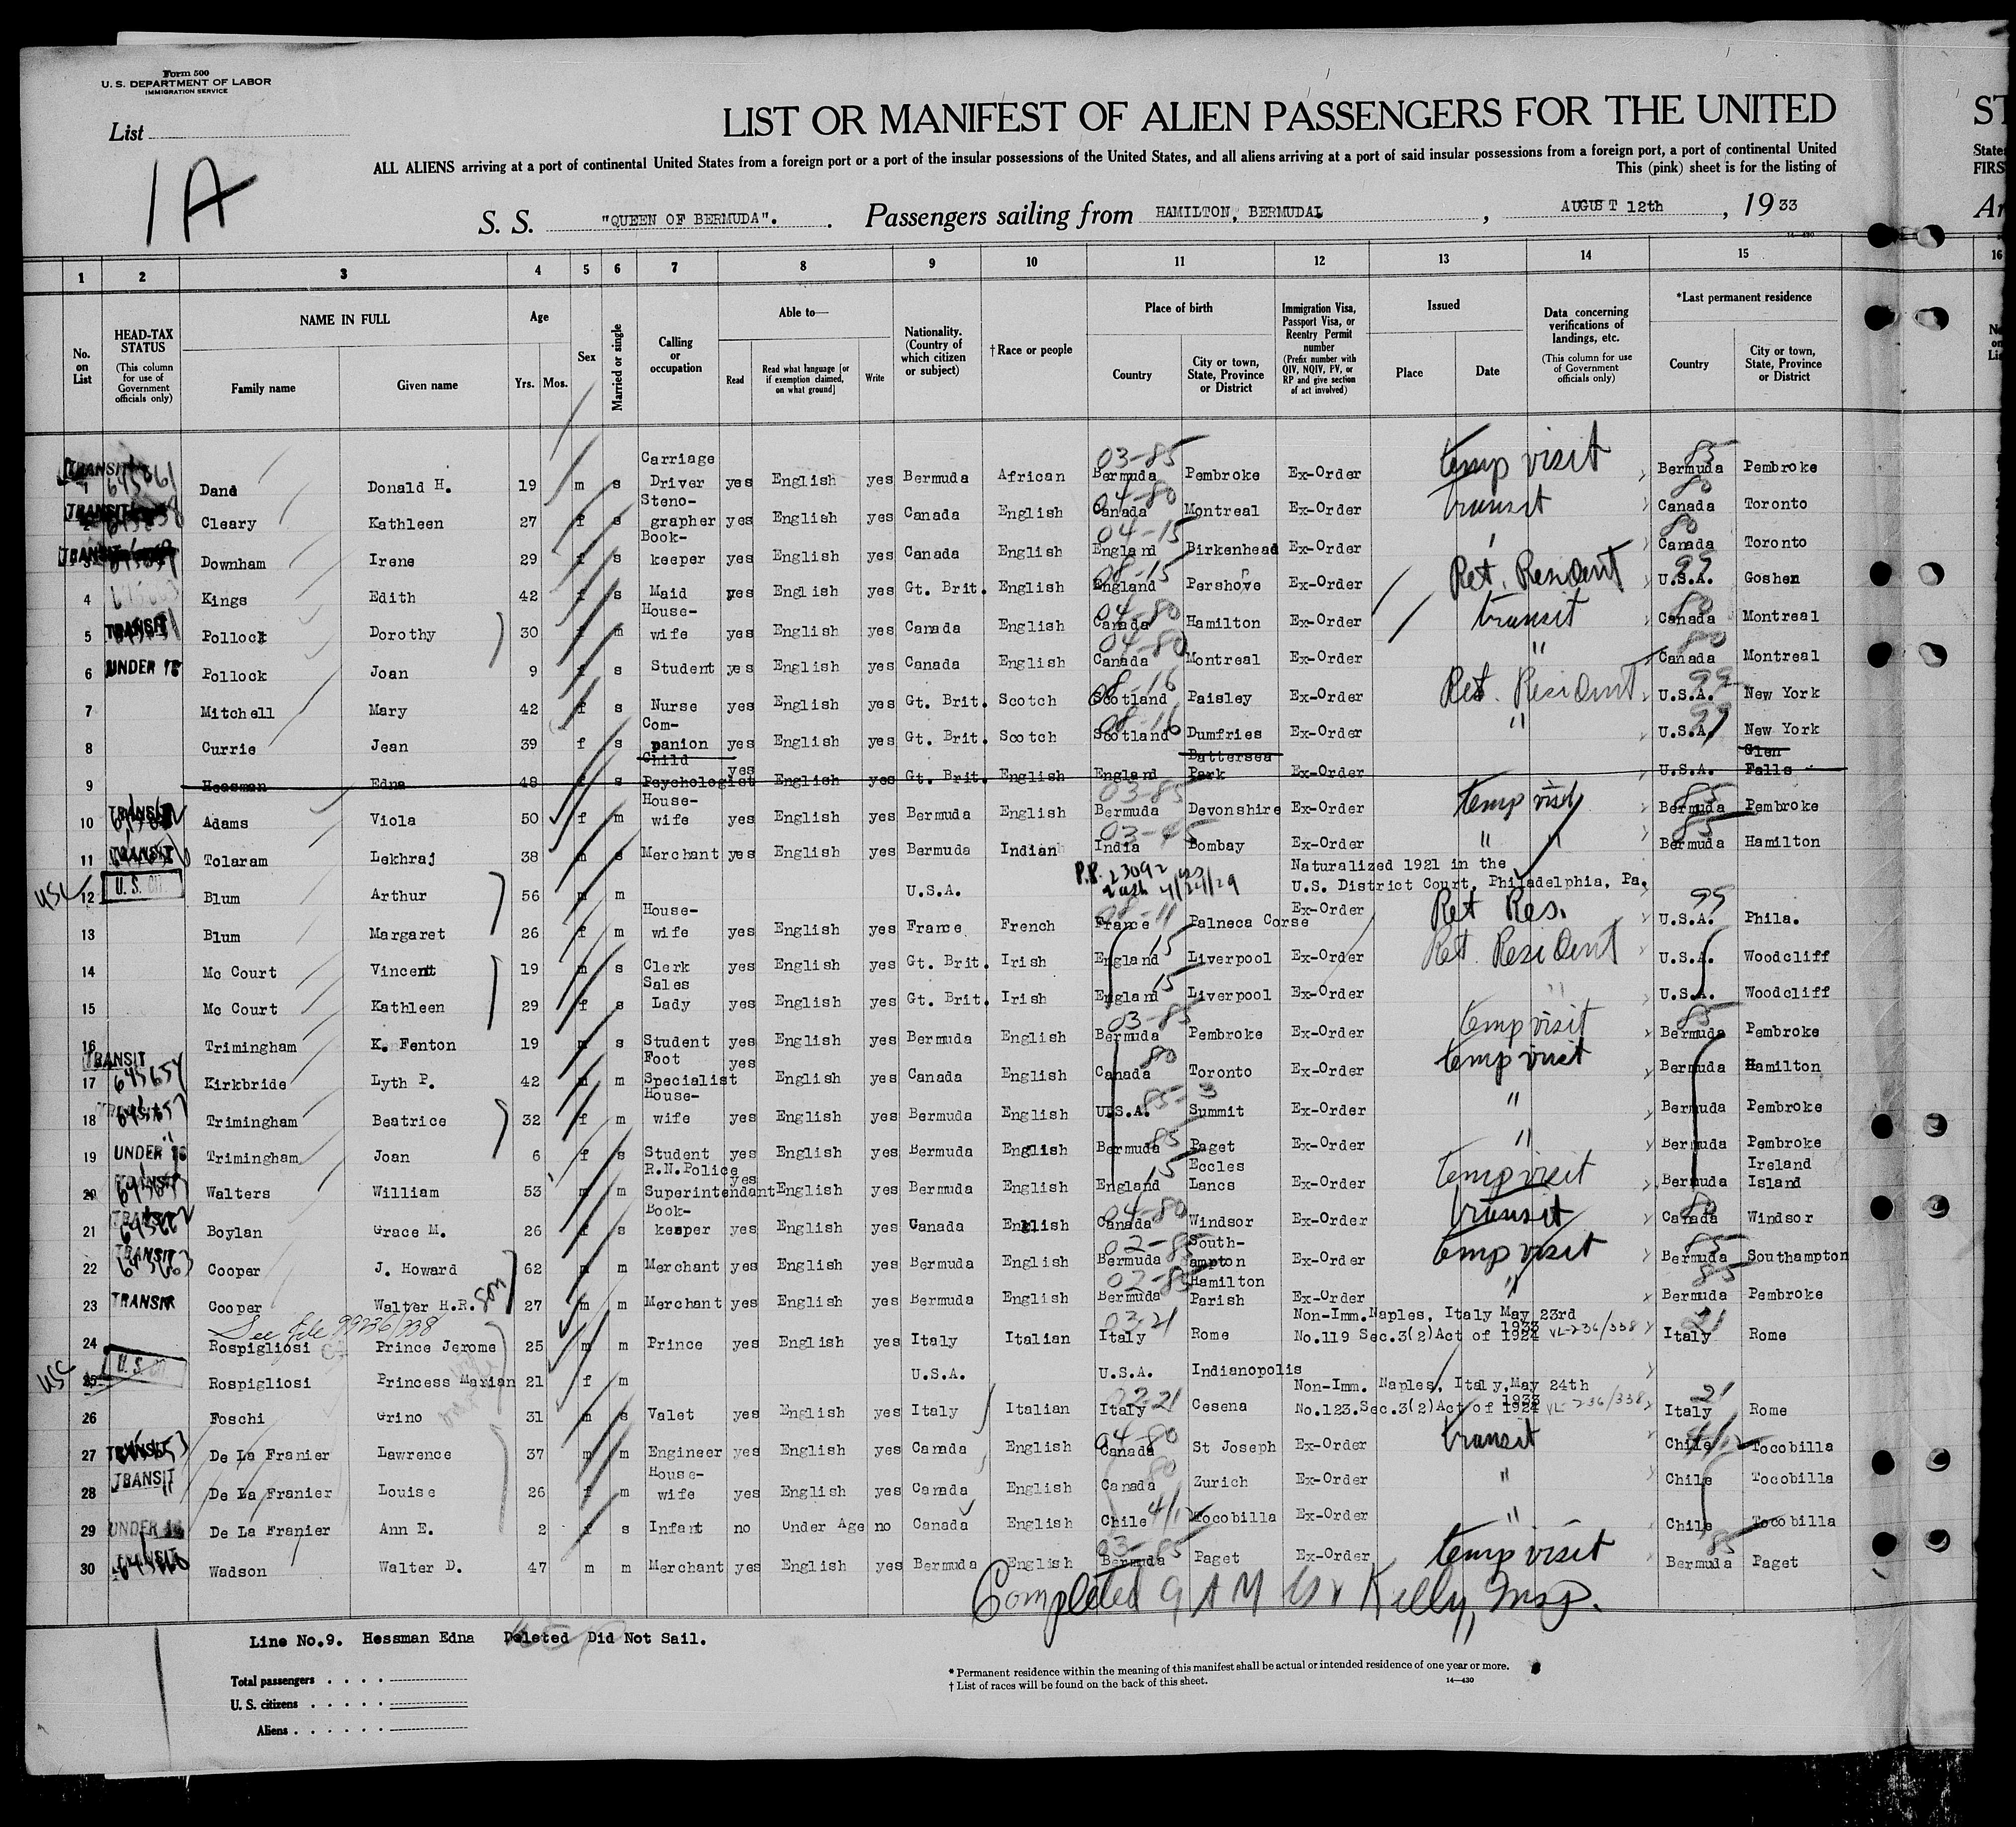 Form 500
U. S. DEPARTMENT OF LABOR
IMMIGRATION SERVICE
List
1A
LIST OR MANIFEST OF ALIEN PASSENGERS FOR THE UNITED
ST
ALL ALIENS arriving at a port of continental United States from a foreign port or a port of the insular possessions of the United States, and all aliens arriving at a port of said insular possessions from a foreign port, a port of continental United
This (pink) sheet is for the listing of
S. S. "QUEEN OF BERMUDA". Passengers sailing from HAMILTON, BERMUDA, AUGUST 12th, 1933
1 2 3 4 5 6 7 8 9 10 11 12 13 14 15 16
No. on List
HEAD-TAX STATUS (This column for use of Government officials only)
NAME IN FULL Family name Given name
Age Yrs. Mos.
Sex
Married or single
Calling or occupation
Able to— Read Read what language [or if exemption claimed, on what ground] Write
Nationality. (Country of which citizen or subject)
†Race or people
Place of birth Country City or town, State, Province or District
Immigration Visa, Passport Visa, or Reentry Permit number (Prefix number with QIV, NQIV, PV, or RP and give section of act involved)
Issued Place Date
Data concerning verifications of landings, etc. (This column for use of Government officials only)
*Last permanent residence Country City or town, State, Province or District
TRANSIT Dane Donald H. 19 m s Carriage Driver yes English yes Bermuda African 03-85 Bermuda Pembroke Ex-Order temp visit 85 Bermuda Pembroke
TRANSIT Cleary Kathleen 27 f s Steno-grapher yes English yes Canada English 04-80 Canada Montreal Ex-Order transit 80 Canada Toronto
TRANSIT 3 Downham Irene 29 f s Book-keeper yes English yes Canada English 04-15 England Birkenhead Ex-Order 80 Canada Toronto
4 Kings Edith 42 f s Maid yes English yes Gt. Brit. English 08-15 England Pershore Ex-Order Ret. Resident 99 U.S.A. Goshen
5 TRANSIT Pollock Dorothy 30 f m House-wife yes English yes Canada English 04-80 Canada Hamilton Ex-Order transit 80 Canada Montreal
6 UNDER 16 Pollock Joan 9 f s Student yes English yes Canada English 04-80 Canada Montreal Ex-Order " 80 Canada Montreal
7 Mitchell Mary 42 f s Nurse yes English yes Gt. Brit. Scotch 08-16 Scotland Paisley Ex-Order Ret. Resident 99 U.S.A. New York
8 Currie Jean 39 f s Com-panion yes English yes Gt. Brit. Scotch 08-16 Scotland Dumfries Ex-Order " 99 U.S.A. New York
9 Hessman Edna 48 f s Child Psychologist yes English yes Gt. Brit. English England Battersea Park Ex-Order U.S.A. Glen Falls
10 TRANSIT Adams Viola 50 f m House-wife yes English yes Bermuda English 03-85 Bermuda Devonshire Ex-Order temp visit 85 Bermuda Pembroke
11 TRANSIT Tolaram Lekhraj 38 m s Merchant yes English yes Bermuda Indian 03-45 India Bombay Ex-Order " " 85 Bermuda Hamilton
USC 12 U. S. CIT Blum Arthur 56 m m U.S.A. P.P. 23092 Wash 4/24/29 Naturalized 1921 in the U.S. District Court, Philadelphia, Pa.
13 Blum Margaret 26 f m House-wife yes English yes France French 08-11 France Palneca Corse Ex-Order Ret Res. 99 U.S.A. Phila.
14 Mc Court Vincent 19 m s Clerk yes English yes Gt. Brit. Irish 15 England Liverpool Ex-Order Ret. Resident U.S.A. Woodcliff
15 Mc Court Kathleen 29 f s Sales Lady yes English yes Gt. Brit. Irish 15 England Liverpool Ex-Order " U.S.A. Woodcliff
16 Trimingham K. Fenton 19 m s Student yes English yes Bermuda English 03-85 Bermuda Pembroke Ex-Order temp visit 85 Bermuda Pembroke
17 TRANSIT 645654 Kirkbride Lyth P. 42 m m Foot Specialist yes English yes Canada English 80 Canada Toronto Ex-Order temp visit Bermuda Hamilton
18 Trimingham Beatrice 32 f m House-wife yes English yes Bermuda English U.S.A. 85-3 Summit Ex-Order " Bermuda Pembroke
19 UNDER 16 Trimingham Joan 6 f s Student yes English yes Bermuda English Bermuda 85 Paget Ex-Order " Bermuda Pembroke
20 Walters William 53 m m R.N.Police Superintendant yes English yes Bermuda English 15 England Eccles Lancs Ex-Order temp visit Bermuda Ireland Island
21 TRANSIT Boylan Grace M. 26 f s Book-keeper yes English yes Canada English 04-80 Canada Windsor Ex-Order transit 80 Canada Windsor
22 TRANSIT 645663 Cooper J. Howard 62 m m Merchant yes English yes Bermuda English 02-85 Bermuda South-ampton Ex-Order temp visit 85 Bermuda Southampton
23 TRANSIT Cooper Walter H.R. son 27 m m Merchant yes English yes Bermuda English 02-85 Bermuda Hamilton Parish Ex-Order " 85 Bermuda Pembroke
See file 99236/338
24 Rospigliosi Prince Jerome 25 m m Prince yes English yes Italy Italian 03-21 Italy Rome Non-Imm. Naples, Italy May 23rd 1933 No.119 Sec.3(2)Act of 1924 VL-236/338 21 Italy Rome
USC 25 U. S. CIT Rospigliosi Princess Marian 21 f m U.S.A. U.S.A. Indianopolis
26 Foschi Grino 31 m s Valet yes English yes Italy Italian 03-21 Italy Cesena Non-Imm. Naples, Italy, May 24th 1933 No.123.Sec.3(2)Act of 1924 VL-236/338 21 Italy Rome
27 TRANSIT De La Franier Lawrence 37 m m Engineer yes English yes Canada English 04-80 Canada St Joseph Ex-Order transit 4/12 Chile Tocobilla
28 TRANSIT De La Franier Louise 26 f m House-wife yes English yes Canada English 80 Canada Zurich Ex-Order " Chile Tocobilla
29 UNDER 16 De La Franier Ann E. 2 f s Infant no Under Age no Canada English Chile 4/12 Tocobilla Ex-Order " Chile Tocobilla
30 Wadson Walter D. 47 m m Merchant yes English yes Bermuda English 03-85 Bermuda Paget Ex-Order temp visit 85 Bermuda Paget
Completed 9 AM Kelly, Insp.
Line No.9. Hessman Edna Deleted Did Not Sail.
Total passengers
U. S. citizens
Aliens
* Permanent residence within the meaning of this manifest shall be actual or intended residence of one year or more.
† List of races will be found on the back of this sheet.
14—430